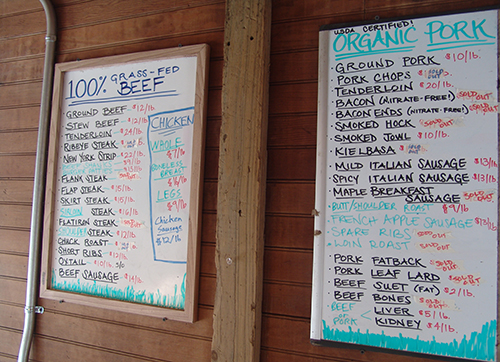 100% GRASS-FED
BEEF
GROUND BEEF $12/lb.
STEW BEEF $12/lb.
TENDERLOIN $24/lb.
RIBEYE STEAK
NEW YORK STRIP
FLANK STEAK
FLAP STEAK $15/lb.
SKIRT STEAK $15/lb.
SIRLOIN STEAK $16/lb.
FLATIRON STEAK
SHOULDER STEAK $12/lb.
CHUCK ROAST
SHORT RIBS $12/lb.
OXTAIL $10/lb. S/O
BEEF SAUSAGE $14/lb.
CHICKEN
WHOLE
$7/lb
BONELESS
BREAST
$16/lb
LEGS
$9/lb
Chicken
Sausage
$12/lb
USDA CERTIFIED!
ORGANIC PORK
GROUND PORK $10/lb.
PORK CHOPS SOLD OUT
TENDERLOIN $20/lb.
BACON (NITRATE-FREE) SOLD OUT
BACON ENDS (NITRATE-FREE!) SOLD OUT
SMOKED HOCK SOLD OUT
SMOKED JOWL $10/lb.
KIELBASA SOLD OUT
MILD ITALIAN SAUSAGE $13/lb
SPICY ITALIAN SAUSAGE $13/lb
MAPLE BREAKFAST
SAUSAGE SOLD OUT
BUTT/SHOULDER ROAST $9/lb
FRENCH APPLE SAUSAGE $13/lb
SPARE RIBS SOLD OUT
LOIN ROAST SOLD OUT
PORK FATBACK SOLD OUT
PORK LEAF LARD SOLD OUT
BEEF SUET (FAT) $2/lb.
BEEF BONES SOLD OUT
BEEF OR PORK < LIVER $5/lb.
KIDNEY $4/lb.